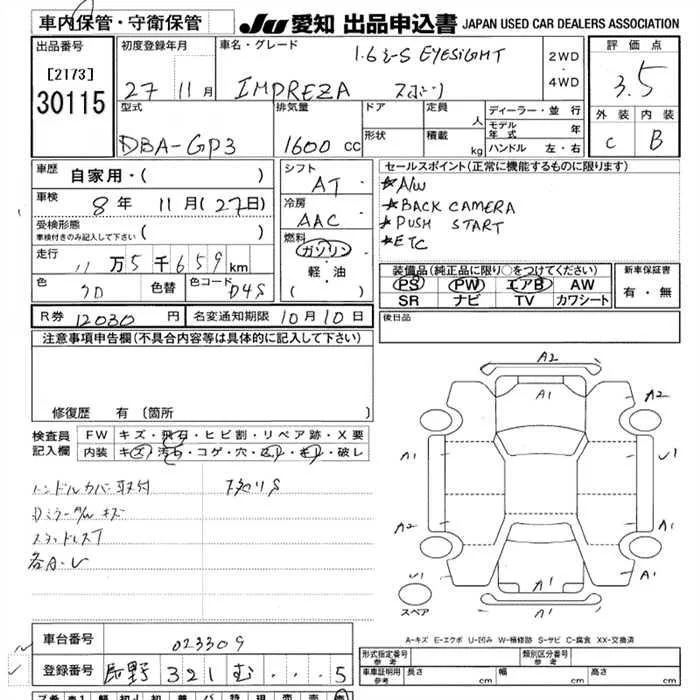 車内保管・守衛保管
JU 愛知 出品申込書 JAPAN USED CAR DEALERS ASSOCIATION
出品番号
[2173]
30115
初度登録年月
27 11月
車名・グレード
1.6i-S EYESIGHT
IMPREZA スポーツ
2WD
4WD
評価点
3.5
外装 内装
C B
型式
DBA-GP3
排気量
1600 cc
ドア
形状
定員 人
積載 kg
ディーラー・並行
モデル年式 年
ハンドル 左・右
車歴
自家用・( )
車検
8年 11月(27日)
受検形態
車検付きのみ記入して下さい ( )
走行
11万5千659km
色
クロ
色替
色コード
D4S
シフト
AT
冷房
AAC
燃料
ガソリン
軽・油
( )
セールスポイント(正常に機能するものに限ります)
★A/W
★BACK CAMERA
★PUSH START
★ETC
装備品(純正品に限り○をつけてください)
PS PW エアB AW
SR ナビ TV カワシート
新車保証書
有・無
R券 12030円 名変通知期限 10月10日
後日品
注意事項申告欄(不具合内容等は具体的に記入して下さい)
修復歴 有(箇所 )
検査員記入欄
FW キズ・飛石・ヒビ割・リペア跡・X要
内装 キズ・汚れ・コゲ・穴・
・破レ
ハンドルカバー取付
Dミラーカバーキズ
スタッドレスT
各A・U
A2
A1
A2
A1
U1
A2
A1
U1
A1
A1
A1
スペア
A-キズ E-エクボ U-凹み W-補修跡 S-サビ C-腐食 XX-交換済
車台番号
023309
登録番号
長野 321 む ・・・5
形式指定番号
参考
類別区分番号
参考
車庫証明用
参考
長さ cm 幅 cm 高さ cm